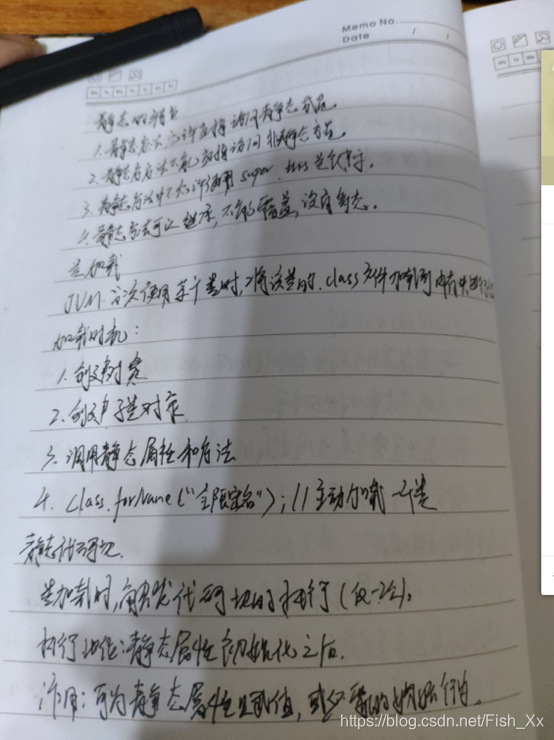 Memo No.
Date / /
静态的特点
1. 静态方法允许直接访问静态成员
2. 静态方法不能直接访问非静态成员
3. 静态方法中不允许使用 super, this 关键字.
4. 静态方法可以继承, 不能覆盖, 没有多态.
类加载
JVM 首次使用某个类时, 将该类的 .class 文件加载到内存中
加载时机:
1. 创建对象
2. 创建子类对象
3. 调用静态属性和方法
4. Class.forName("全限定名"); // 主动加载一个类
静态代码块.
类加载时, 触发代码块的执行 (仅一次).
执行地位: 静态属性初始化之后.
作用: 可为静态属性赋值, 或必要的初始行为.
https://blog.csdn.net/Fish_Xx